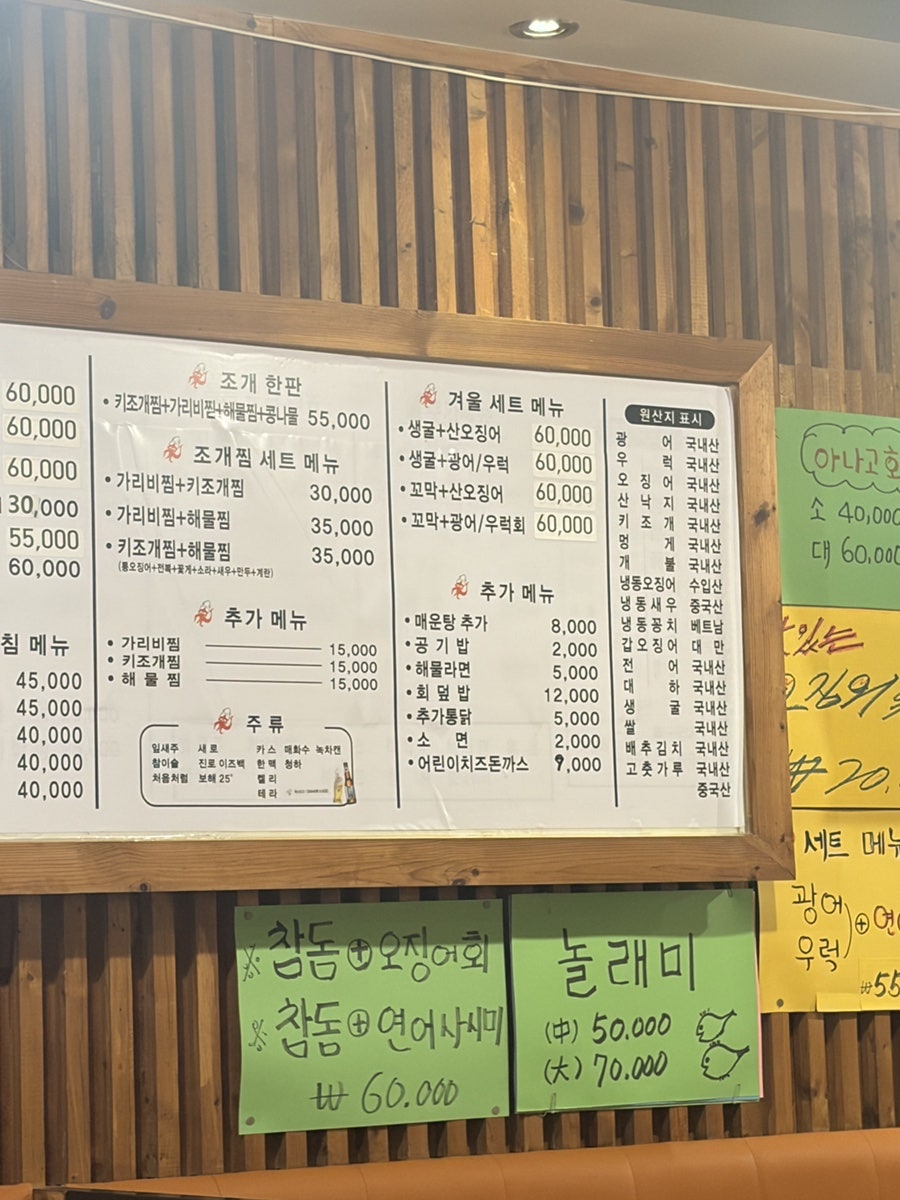 60,000
60,000
60,000
30,000
55,000
60,000
침 메뉴
45,000
45,000
40,000
40,000
40,000
조개 한판
• 키조개찜+가리비찜+해물찜+콩나물 55,000
조개찜 세트 메뉴
• 가리비찜+키조개찜 30,000
• 가리비찜+해물찜 35,000
• 키조개찜+해물찜 35,000
(통오징어+전복+꽃게+소라+새우+만두+계란)
추가 메뉴
• 가리비찜 15,000
• 키조개찜 15,000
• 해 물 찜 15,000
주 류
잎새주 새 로 카 스 매화수 녹차캔
참이슬 진로 이즈백 한 맥 청하
처음처럼 보해 25° 켈 리
테 라
겨울 세트 메뉴
• 생굴+산오징어 60,000
• 생굴+광어/우럭 60,000
• 꼬막+산오징어 60,000
• 꼬막+광어/우럭회 60,000
추가 메뉴
• 매운탕 추가 8,000
• 공 기 밥 2,000
• 해물라면 5,000
• 회 덮 밥 12,000
• 추가통닭 5,000
• 소 면 2,000
• 어린이치즈돈까스 9,000
원산지 표시
광 어 국내산
우 럭 국내산
오 징 어 국내산
산 낙 지 국내산
키 조 개 국내산
멍 게 국내산
개 불 국내산
냉동오징어 수입산
냉 동 새 우 중국산
냉 동 꽁 치 베트남
갑 오 징 어 대 만
전 어 국내산
대 하 국내산
생 굴 국내산
쌀 국내산
배 추 김 치 국내산
고 춧 가 루 국내산
중국산
아나고회
소 40,000
대 60,000
있는
₩20.
세트 메뉴
광어
우럭
⊕ 연
₩55
※ 참돔 ⊕ 오징어회
※ 참돔 ⊕ 연어사시미
₩ 60.000
놀래미
(中) 50.000
(大) 70.000